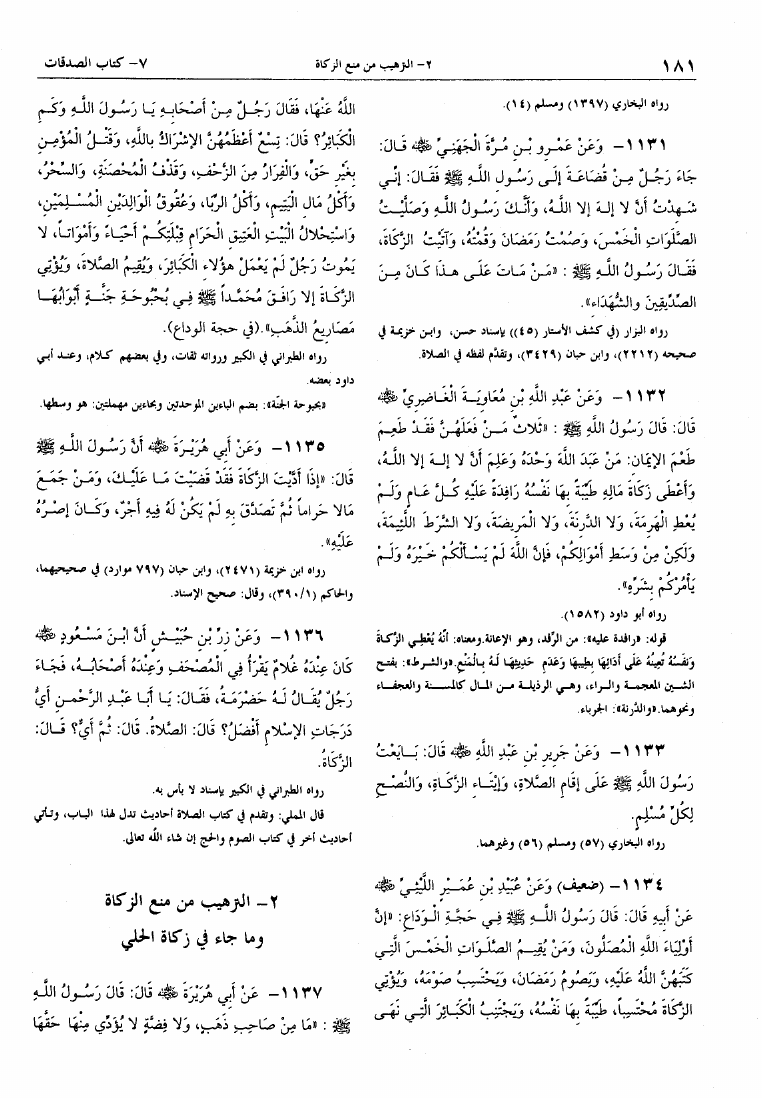 ١٨١
٢- الترهيب من منع الزكاة
٧- كتاب الصدقات
رواه البخاري (١٣٩٧) ومسلم (١٤).
١١٣١- وَعَنْ عَمْرِو بْنِ مُرَّةَ الْجُهَنِيِّ ﷺ قَالَ:
جَاءَ رَجُلٌ مِنْ قُضَاعَةَ إِلَى رَسُولِ اللَّهِ ﷺ فَقَالَ: إِنِّي
شَهِدْتُ أَنْ لا إِلهَ إِلا اللَّهُ، وَأَنَّكَ رَسُولُ اللَّهِ وَصَلَّيْتُ
الصَّلَوَاتِ الْخَمْسَ، وَصُمْتُ رَمَضَانَ وَقُمْتُهُ، وَآتَيْتُ الزَّكَاةَ،
فَقَالَ رَسُولُ اللَّهِ ﷺ : «مَنْ مَاتَ عَلَى هذَا كَانَ مِنَ
الصِّدِّيقِينَ وَالشُّهَدَاءِ».
رواه البزار (في كشف الأستار (٤٥)) بإسناد حسن، وابن خزيمة في
صحيحه (٢٢١٢)، وابن حبان (٣٤٢٩)، وتقدَّم لفظه في الصلاة.
١١٣٢- وَعَنْ عَبْدِ اللَّهِ بْنِ مُعَاوِيَةَ الْغَاضِرِيِّ ﷺ
قَالَ: قَالَ رَسُولُ اللَّهِ ﷺ : «ثَلاثٌ مَنْ فَعَلَهُنَّ فَقَدْ طَعِمَ
طَعْمَ الإِيمَانِ: مَنْ عَبَدَ اللَّهَ وَحْدَهُ وَعَلِمَ أَنْ لا إِلهَ إِلا اللَّهُ،
وَأَعْطَى زَكَاةَ مَالِهِ طَيِّبَةً بِهَا نَفْسُهُ رَافِدَةً عَلَيْهِ كُلَّ عَامٍ وَلَمْ
يُعْطِ الْهَرِمَةَ، وَلا الدَّرِنَةَ، وَلا الْمَرِيضَةَ، وَلا الشَّرَطَ اللَّئِيمَةَ،
وَلَكِنْ مِنْ وَسَطِ أَمْوَالِكُمْ، فَإِنَّ اللَّهَ لَمْ يَسْأَلْكُمْ خَيْرَهُ وَلَمْ
يَأْمُرْكُمْ بِشَرِّهِ».
رواه أبو داود (١٥٨٢).
قوله: «رافدة عليه»: من الرِّفد، وهو الإعانة.ومعناه: أَنَّهُ يُعْطِي الزَّكَاةَ
وَنَفْسُهُ تُعِينُهُ عَلَى أَدَائِهَا بِطِيبِهَا وَعَدَمِ حَدِيثِهَا لَهُ بِالْمَنْعِ.«والشرط»: بفتح
الشين المعجمة والراء، وهي الرذيلة من المال كالمسنة والعجفاء
ونحوهما.«والدَّرنة»: الجرباء.
١١٣٣- وَعَنْ جَرِيرِ بْنِ عَبْدِ اللَّهِ ﷺ قَالَ: بَايَعْتُ
رَسُولَ اللَّهِ ﷺ عَلَى إِقَامِ الصَّلاةِ، وَإِيْتَاءِ الزَّكَاةِ، وَالنُّصْحِ
لِكُلِّ مُسْلِمٍ.
رواه البخاري (٥٧) ومسلم (٥٦) وغيرهما.
١١٣٤- (ضعيف) وَعَنْ عُبَيْدِ بْنِ عُمَيْرٍ اللَّيْثِيِّ ﷺ
عَنْ أَبِيهِ قَالَ: قَالَ رَسُولُ اللَّهِ ﷺ فِي حَجَّةِ الْوَدَاعِ: «إِنَّ
أَوْلِيَاءَ اللَّهِ الْمُصَلُّونَ، وَمَنْ يُقِيمُ الصَّلَوَاتِ الْخَمْسَ الَّتِي
كَتَبَهُنَّ اللَّهُ عَلَيْهِ، وَيَصُومُ رَمَضَانَ، وَيَحْتَسِبُ صَوْمَهُ، وَيُؤْتِي
الزَّكَاةَ مُحْتَسِباً، طَيِّبَةً بِهَا نَفْسُهُ، وَيَجْتَنِبُ الْكَبَائِرَ الَّتِي نَهَى
اللَّهُ عَنْهَا، فَقَالَ رَجُلٌ مِنْ أَصْحَابِهِ يَا رَسُولَ اللَّهِ وَكَمِ
الْكَبَائِرُ؟ قَالَ: تِسْعٌ أَعْظَمُهُنَّ الإِشْرَاكُ بِاللَّهِ، وَقَتْلُ الْمُؤْمِنِ
بِغَيْرِ حَقٍّ، وَالْفِرَارُ مِنَ الزَّحْفِ، وَقَذْفُ الْمُحْصَنَةِ، وَالسِّحْرُ،
وَأَكْلُ مَالِ الْيَتِيمِ، وَأَكْلُ الرِّبَا، وَعُقُوقُ الْوَالِدَيْنِ الْمُسْلِمَيْنِ،
وَاسْتِحْلالُ الْبَيْتِ الْعَتِيقِ الْحَرَامِ قِبْلَتِكُمْ أَحْيَاءً وَأَمْوَاتاً، لا
يَمُوتُ رَجُلٌ لَمْ يَعْمَلْ هؤُلاءِ الْكَبَائِرَ، وَيُقِيمُ الصَّلاةَ، وَيُؤْتِي
الزَّكَاةَ إِلا رَافَقَ مُحَمَّداً ﷺ فِي بُحْبُوحَةِ جَنَّةٍ أَبْوَابُهَا
مَصَارِيعُ الذَّهَبِ».(في حجة الوداع).
رواه الطبراني في الكبير ورواته ثقات، وفي بعضهم كلام، وعند أبي
داود بعضه.
«بحبوحة الجنَّة»: بضم الباءين الموحدتين وبحاءين مهملتين: هو وسطها.
١١٣٥- وَعَنْ أَبِي هُرَيْرَةَ ﷺ أَنَّ رَسُولَ اللَّهِ ﷺ
قَالَ: «إِذَا أَدَّيْتَ الزَّكَاةَ فَقَدْ قَضَيْتَ مَا عَلَيْكَ، وَمَنْ جَمَعَ
مَالا حَرَاماً ثُمَّ تَصَدَّقَ بِهِ لَمْ يَكُنْ لَهُ فِيهِ أَجْرٌ، وَكَانَ إِصْرُهُ
عَلَيْهِ».
رواه ابن خزيمة (٢٤٧١)، وابن حبان (٧٩٧ موارد) في صحيحيهما،
والحاكم (٣٩٠/١)، وقال: صحيح الإسناد.
١١٣٦- وَعَنْ زِرِّ بْنِ حُبَيْشٍ أَنَّ ابْنَ مَسْعُودٍ ﷺ
كَانَ عِنْدَهُ غُلامٌ يَقْرَأُ فِي الْمُصْحَفِ وَعِنْدَهُ أَصْحَابُهُ، فَجَاءَ
رَجُلٌ يُقَالُ لَهُ حَضْرَمَةُ، فَقَالَ: يَا أَبَا عَبْدِ الرَّحْمنِ أَيُّ
دَرَجَاتِ الإِسْلامِ أَفْضَلُ؟ قَالَ: الصَّلاةُ. قَالَ: ثُمَّ أَيٌّ؟ قَالَ:
الزَّكَاةُ.
رواه الطبراني في الكبير بإسناد لا بأس به.
قال المملي: وتقدم في كتاب الصلاة أحاديث تدل لهذا الباب، وتأتي
أحاديث أخر في كتاب الصوم والحج إن شاء الله تعالى.
٢- الترهيب من منع الزكاة
وما جاء في زكاة الحلي
١١٣٧- عَنْ أَبِي هُرَيْرَةَ ﷺ قَالَ: قَالَ رَسُولُ اللَّهِ
ﷺ : «مَا مِنْ صَاحِبِ ذَهَبٍ، وَلا فِضَّةٍ لا يُؤَدِّي مِنْهَا حَقَّهَا